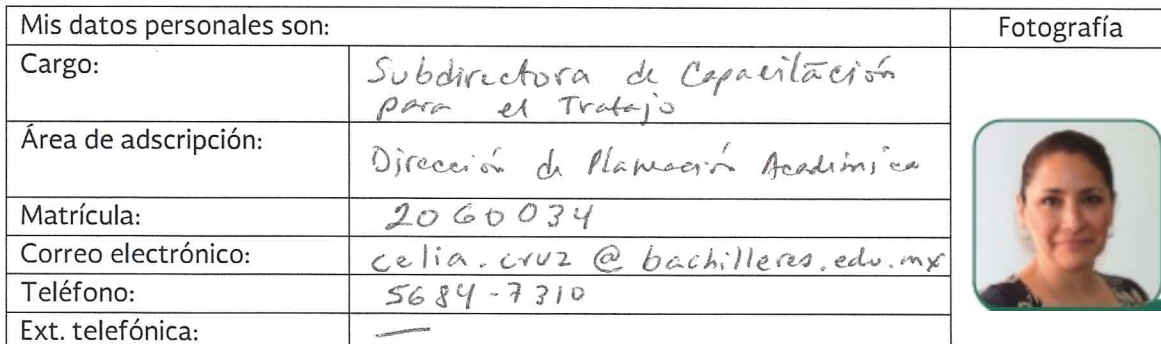 Mis datos personales son: Fotografía
Cargo: Subdirectora de Capacitación
para el Trabajo
Área de adscripción: Dirección de Planeación Académica
Matrícula: 2060034
Correo electrónico: celia.cruz @ bachilleres.edu.mx
Teléfono: 5684-7310
Ext. telefónica: —